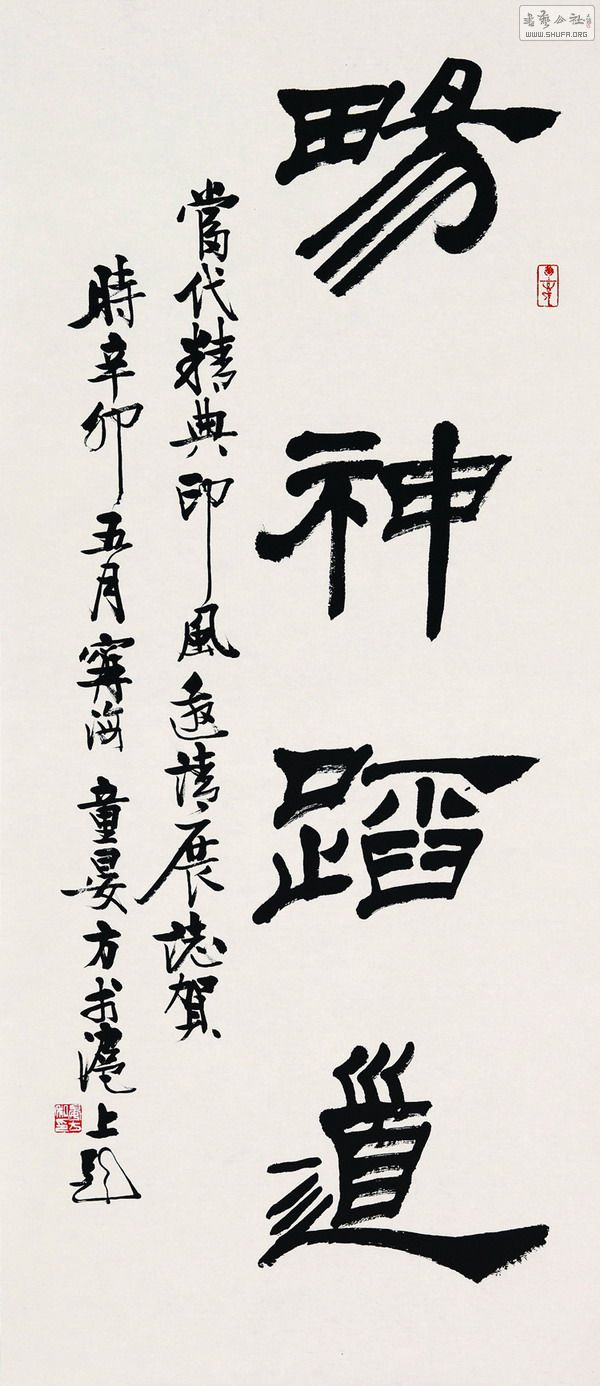 書藝公社
WWW.SHUFA.ORG
暢神蹈道
當代精典印風邀請展誌賀
時辛卯五月寧海童晏方於滬上題